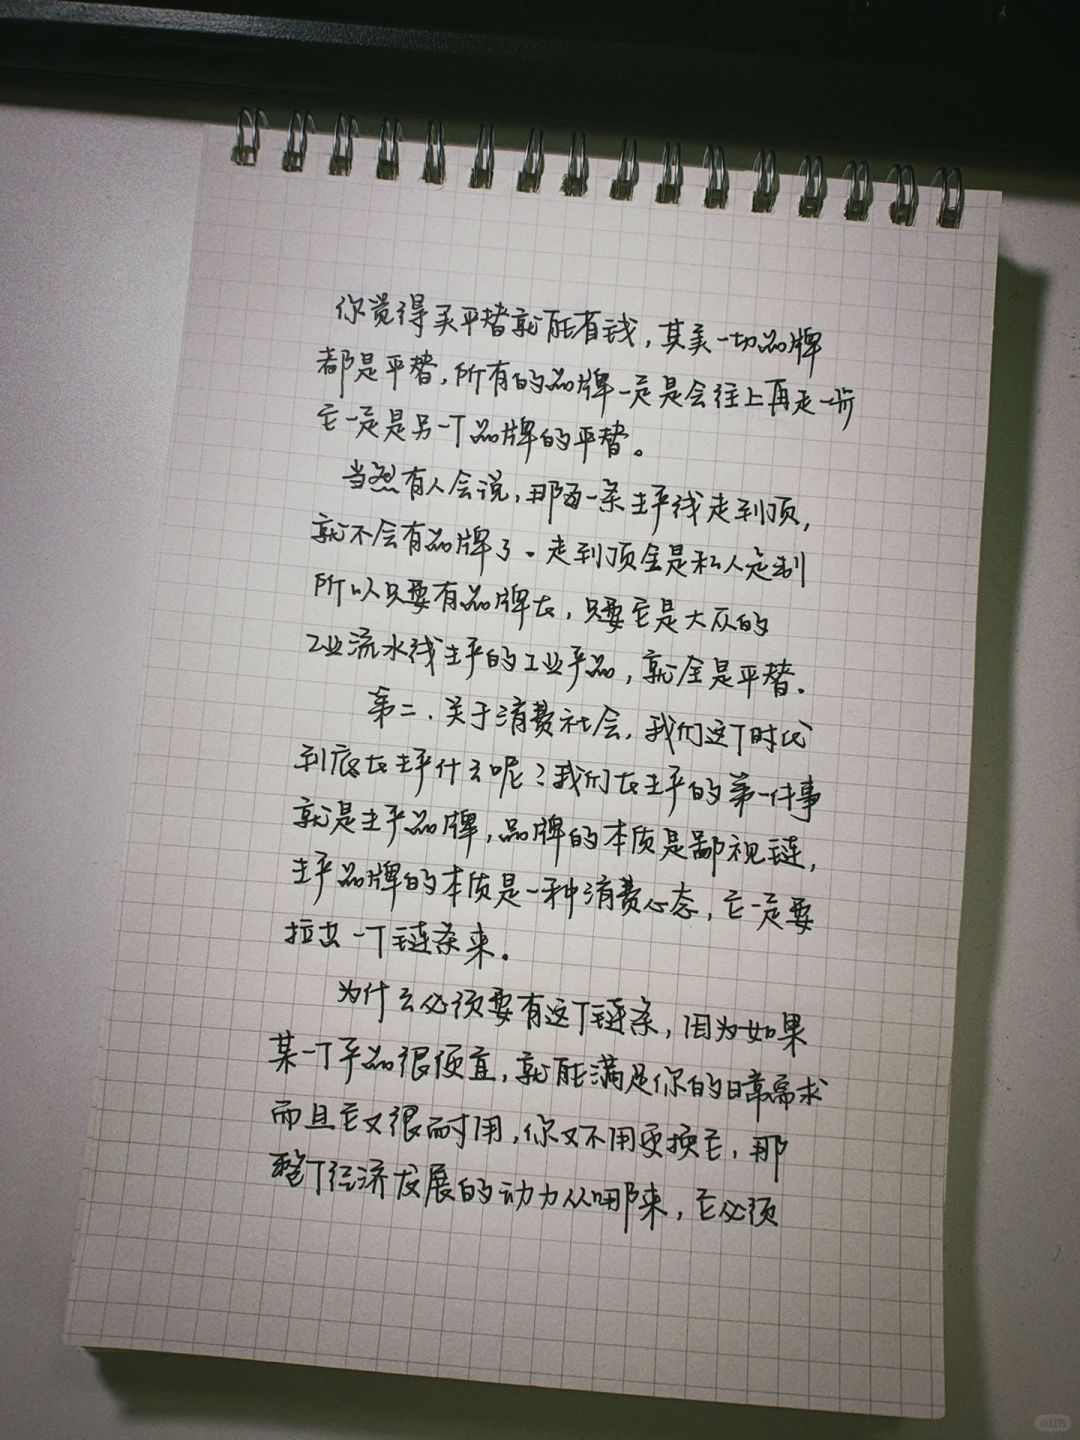 你觉得买平替就能省钱，其实一切品牌
都是平替，所有的品牌一定是会往上再走一步
它一定是另一个品牌的平替。
当然有人会说，那有一条生产线走到顶，
就不会有品牌了。走到顶全是私人定制
所以只要有品牌在，只要它是大众的
工业流水线生产的工业产品，就全是平替。
第二．关于消费社会，我们这个时代
到底在生产什么呢？我们在生产的第一件事
就是生产品牌，品牌的本质是鄙视链，
生产品牌的本质是一种消费心态，它一定要
拉出一个链条来。
为什么必须要有这个链条，因为如果
某一个产品很便宜，就能满足你的日常需求
而且它又很耐用，你又不用更换它，那
整个经济发展的动力从哪来，它必须
小红书